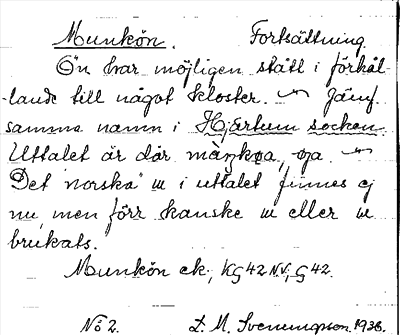 Munkön. Fortsättning
Ön har möjligen stått i förhål-
lande till något kloster. Jämf.
samma namn i Hjärtum socken.
Uttalet är där
Det norska i uttalet finnes ej
nu, men förr kanske eller
brukats.
Munkön ek., KG 42 N.V., G 42.
No 2. L. M. Svenungsson. 1938.